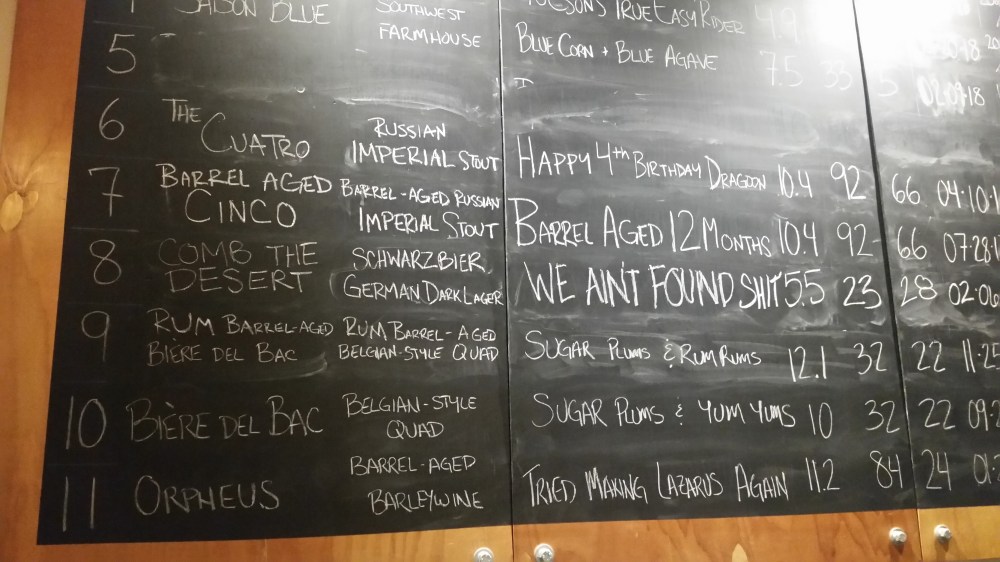 SAISON BLUE SOUTHWEST FARMHOUSE TUCSON'S TRUE EASY RIDER 4.9
5 BLUE CORN + BLUE AGAVE 7.5 33 5 02·09·18
6 THE CUATRO RUSSIAN IMPERIAL STOUT HAPPY 4th BIRTHDAY DRAGOON 10.4 92 66 04·10·1
7 BARREL AGED CINCO BARREL-AGED RUSSIAN IMPERIAL STOUT BARREL AGED 12 MONTHS 10.4 92 66 07·28·1
8 COMB THE DESERT SCHWARZBIER GERMAN DARK LAGER WE AIN'T FOUND SHIT 5.5 23 28 02·06
9 RUM BARREL-AGED BIÈRE DEL BAC RUM BARREL-AGED BELGIAN-STYLE QUAD SUGAR PLUMS & RUM RUMS 12.1 32 22 11·25
10 BIÈRE DEL BAC BELGIAN-STYLE QUAD SUGAR PLUMS & YUM YUMS 10 32 22 09·2
11 ORPHEUS BARREL-AGED BARLEYWINE TRIED MAKING LAZARUS AGAIN 11.2 84 24 01·2